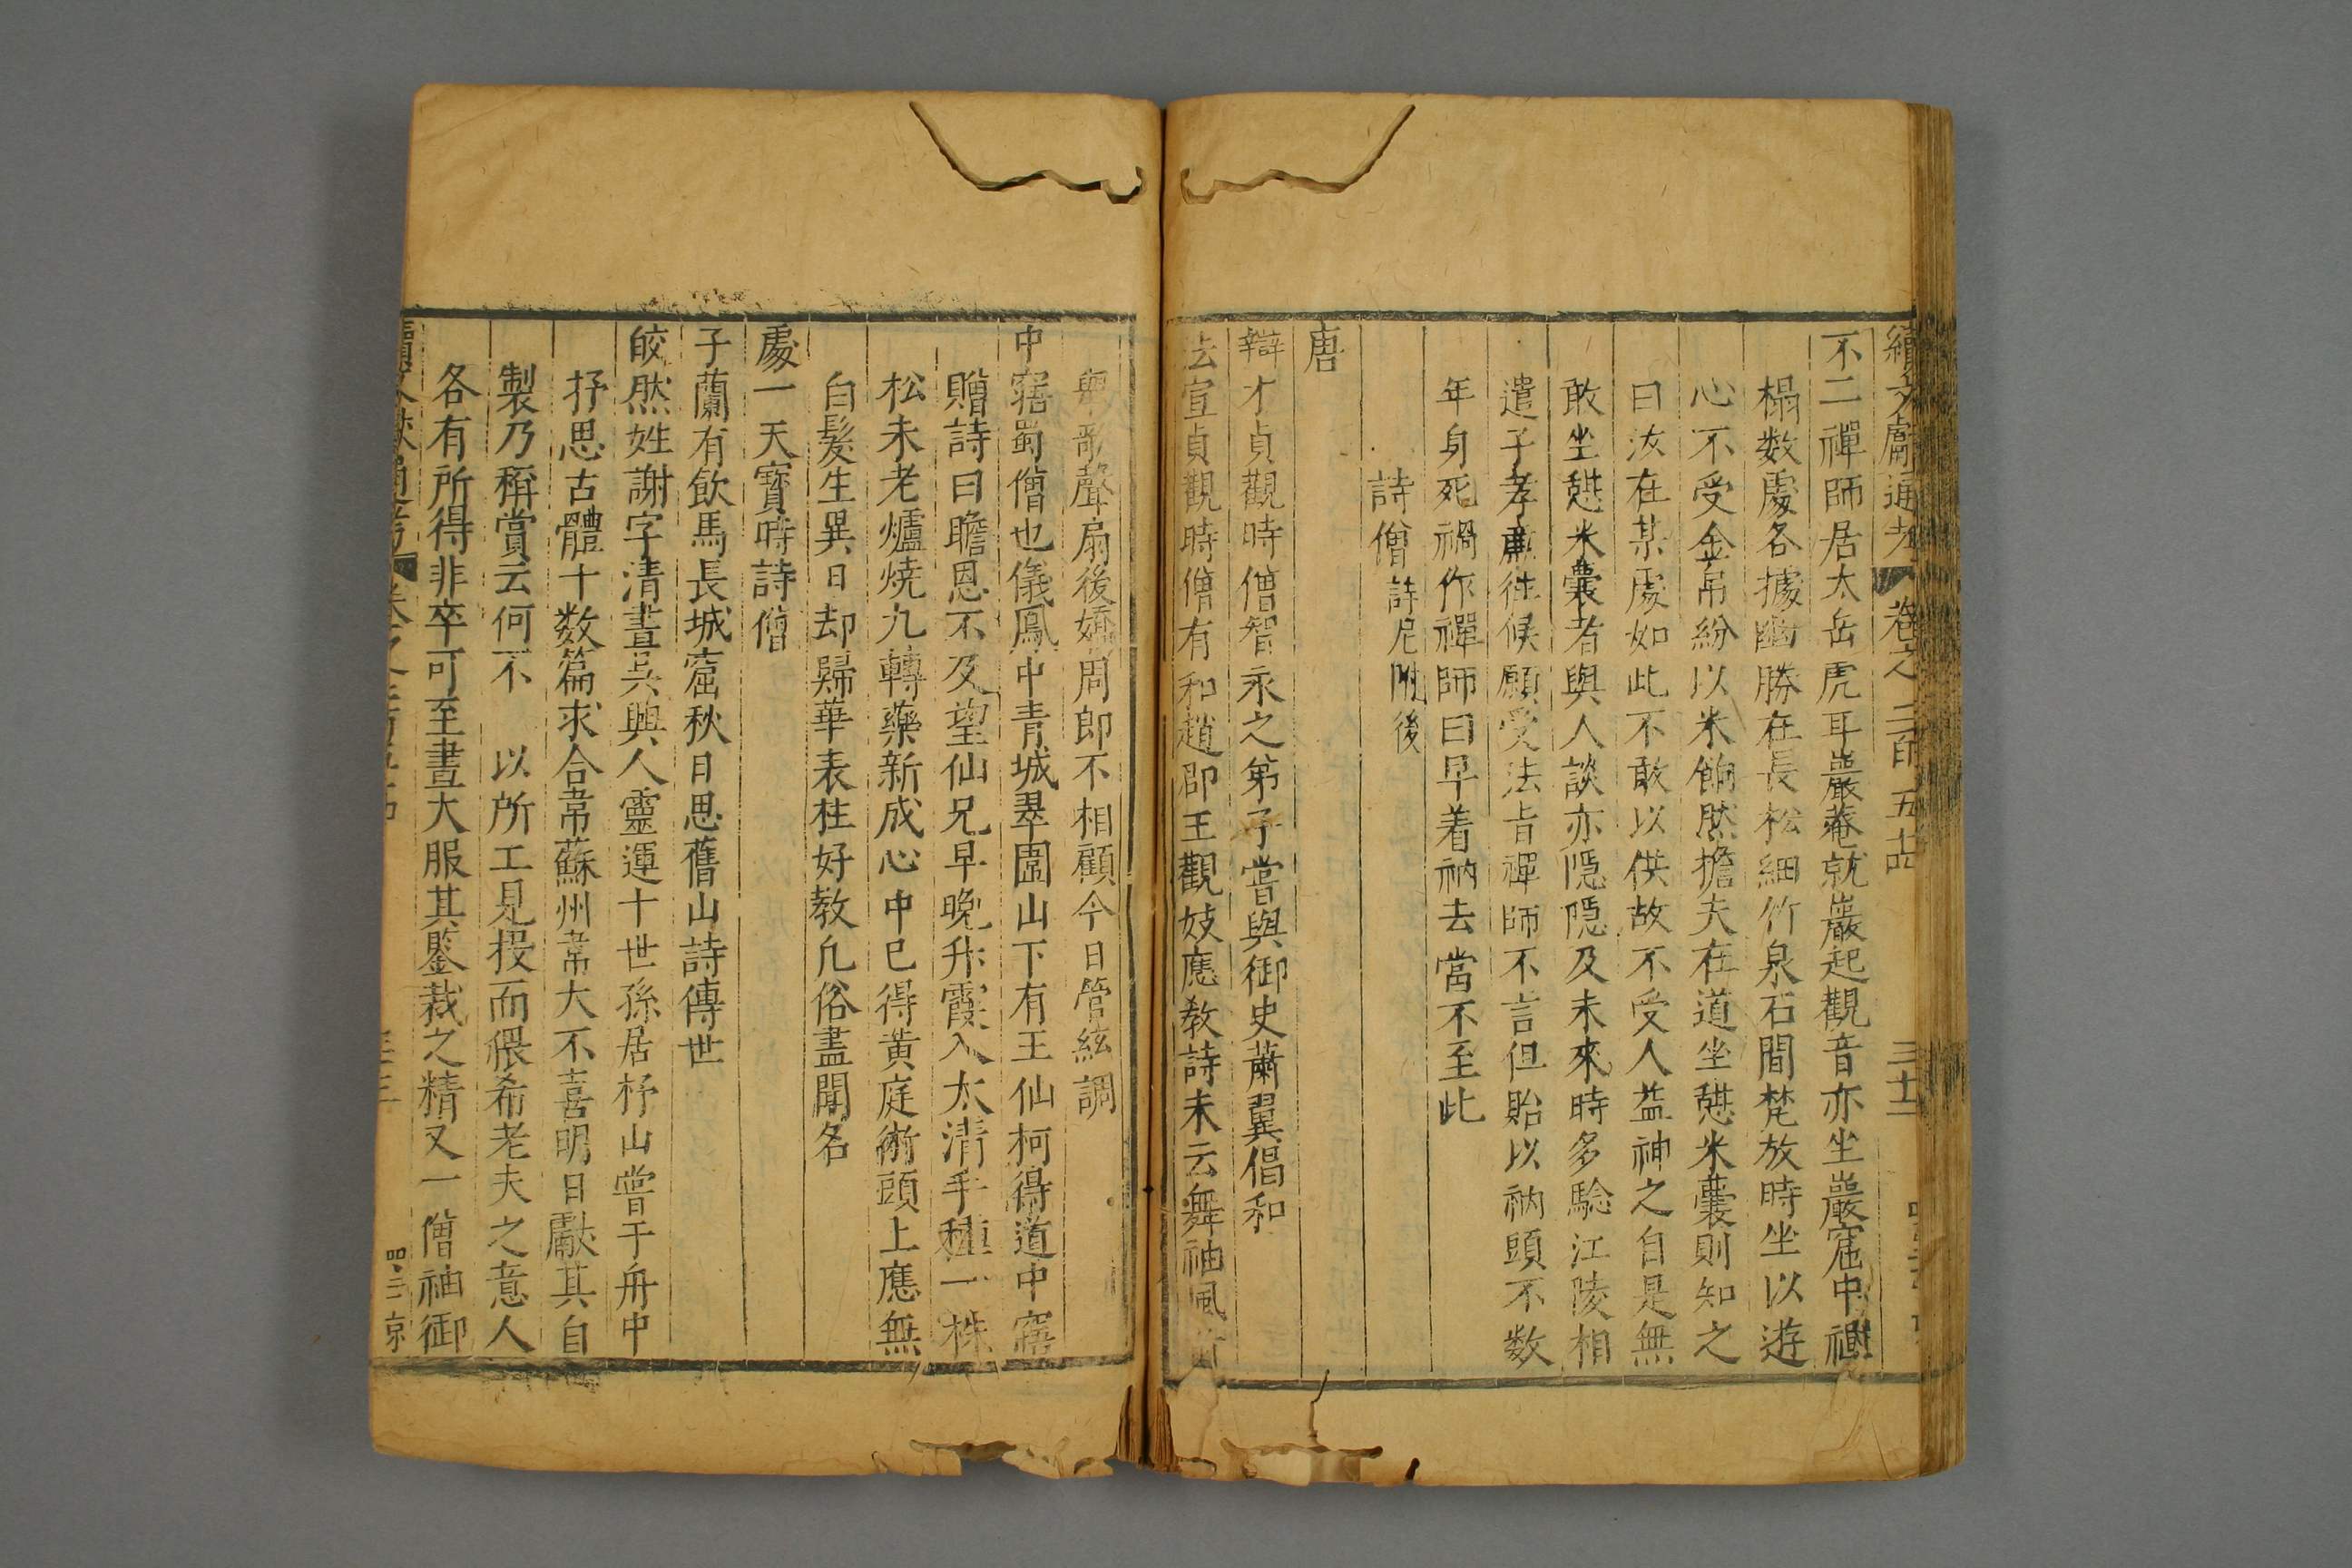 續文獻通考 卷之二百五十四 三十二
不二禪師居太岳虎耳巖菴就巖起觀音亦坐巖窟中禪
榻数處各據幽勝在長松細竹泉石間梵放時坐以遊
心不受金帛紛以米餉然擔夫在道坐憇米囊則知之
曰汝在某處如此不敢以供故不受人益神之自是無
敢坐憇米囊者與人談亦隠隠及未來時多騐江陵相
遣子孝廉往候願受法旨禪師不言但貽以衲頭不数
年身死禍作禪師曰早着衲去當不至此
詩僧 詩尼附後
唐
辯才貞觀時僧智永之第子嘗與御史蕭翼倡和
法宣貞觀時僧有和趙郎王觀妓應教詩末云舞袖風前
舉歌聲扇後嬌周郎不相顧今日管絃調
中寤蜀僧也儀鳳中青城翠圍山下有王仙柯得道中寤
贈詩曰瞻恩不及望仙兄早晚升霞入太清手種一株
松未老爐燒九轉藥新成心中已得黄庭術頭上應無
白髮生異日却歸華表柱好教凡俗盡聞名
處一天寶時詩僧
子蘭有飲馬長城窟秋日思舊山詩傳世
皎然姓謝字清晝吳興人靈運十世孫居杼山嘗于舟中
抒思古體十数篇求合韋蘇州韋大不喜明日獻其自
製乃稱賞云何不 以所工見投而猥希老夫之意人
各有所得非卒可至晝大服其鑒裁之精又一僧袖御
續文獻通考 卷之二百五十四